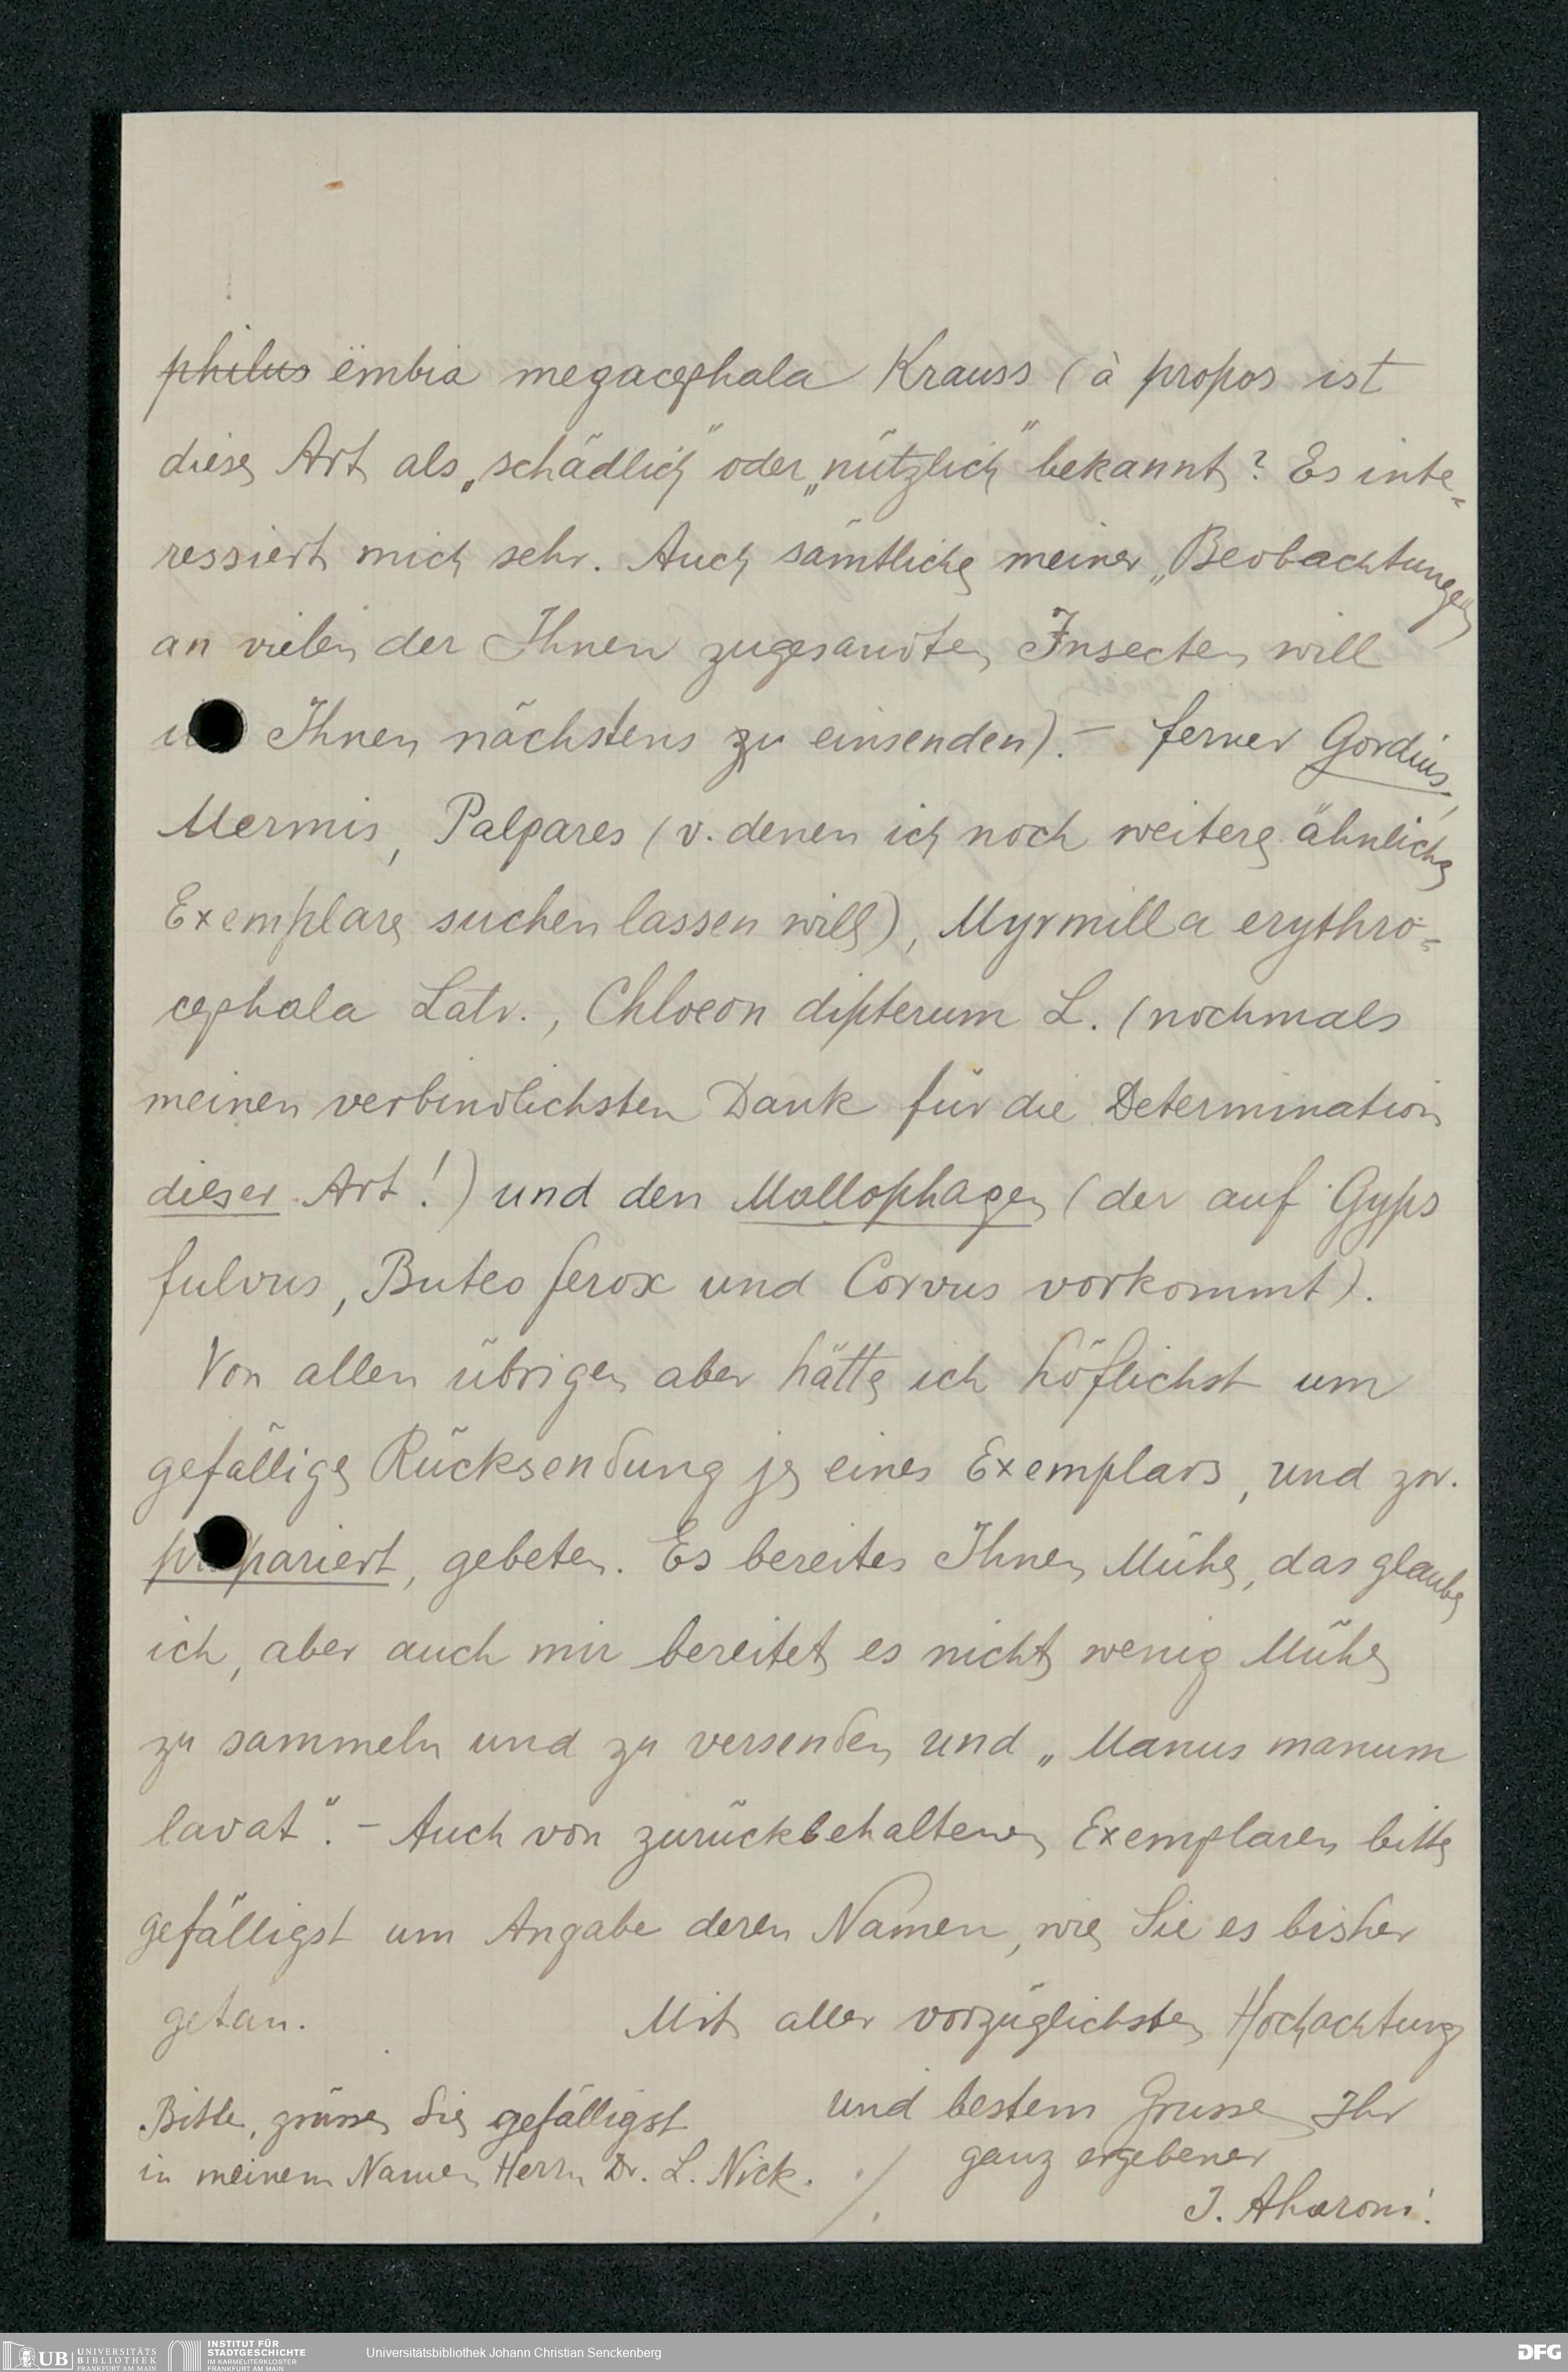 philus embia megacephala Krauss (à propos ist
diese Art als „schädlich" oder „nützlich" bekannt? Es inte-
ressiert mich sehr. Auch sämtliche meiner „Beobachtungen"
an vielen der Ihnen zugesandten Insecten will
Ihnen nächstens zu einsenden). – ferner Gordius,
Mermis, Palpares (v. denen ich noch weitere ähnliche
Exemplare suchen lassen will), Myrmilla erythro-
cephala Latr., Chloeon dipterum L. (nochmals
meinen verbindlichsten Dank für die Determination
dieser Art!) und den Mallophagen (der auf Gyps
fulvus, Buteo ferox und Corvus vorkommt).
Von allen übrigen aber hätte ich höflichst um
gefällige Rücksendung je eines Exemplars, und zw.
präpariert, gebeten. Es bereites Ihnen Mühe, das glaube
ich, aber auch mir bereitet es nicht wenig Mühe
zu sammeln und zu versenden und „Manus manum
lavat". – Auch von zurückbehaltenen Exemplaren bitte
gefälligst um Angabe deren Namen, wie Sie es bisher
getan. Mit aller vorzüglichsten Hochachtung
und bestem Grusse Ihr
ganz ergebener
J. Aharoni.
Bitte, grüssen Sie gefälligst
in meinem Namen Herrn Dr. L. Nick. ./.
UB UNIVERSITÄTS
BIBLIOTHEK
FRANKFURT AM MAIN
INSTITUT FÜR
STADTGESCHICHTE
IM KARMELITERKLOSTER
FRANKFURT AM MAIN
Universitätsbibliothek Johann Christian Senckenberg
DFG